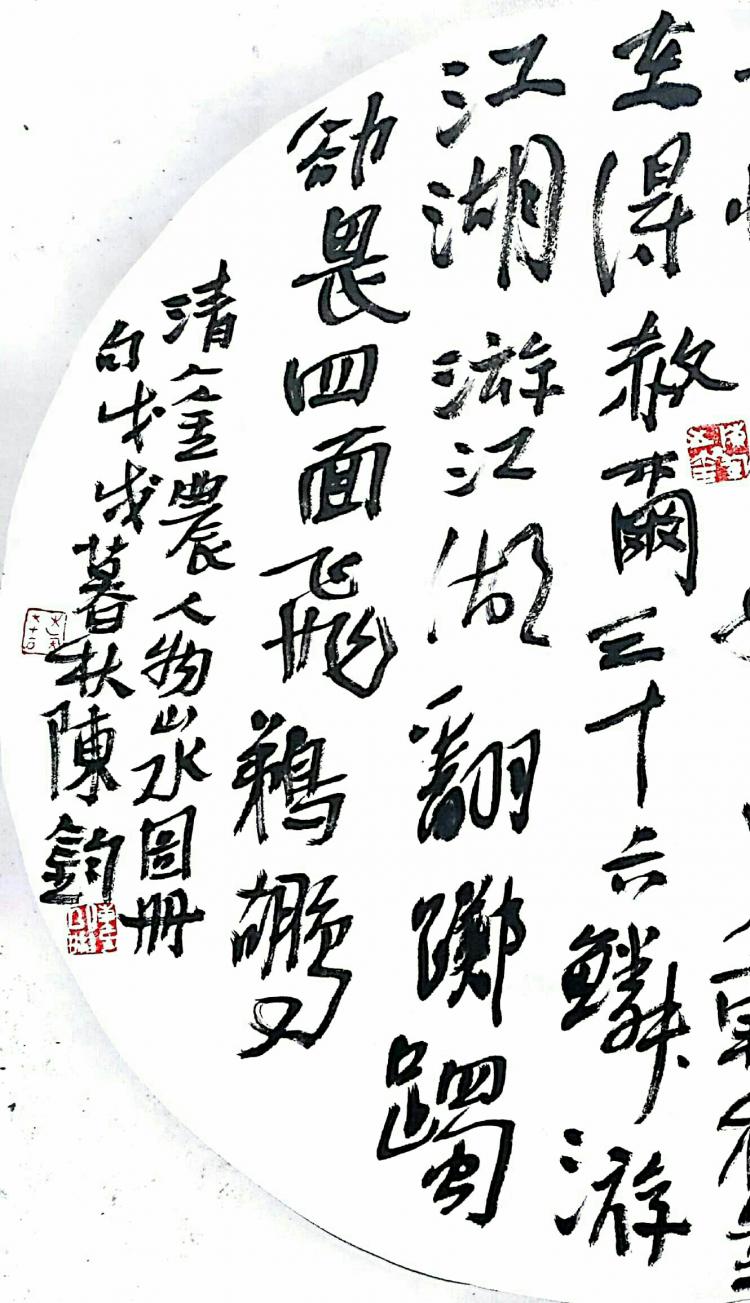 在得赦爾三十六鱗游
江湖游江湖翻躑躅
卻畏四面飛鵜鶘
清人金農人物山水圖冊
句戊戌暮秋陳鈞